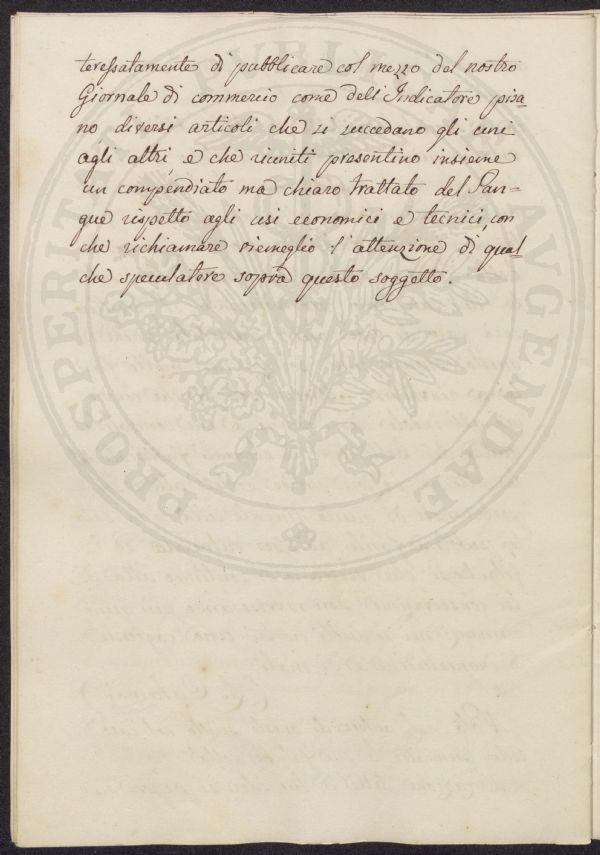 teressatamente di pubblicare col mezzo del nostro
Giornale di commercio come dell'Indicatore pisa=
no diversi articoli che si succedano gli uni
agli altri, e che riuniti presentino insieme
un compendiato ma chiaro trattato del San=
gue rispetto agli usi economici e tecnici, con
che richiamare viemeglio l'attenzione di qual=
che speculatore sopra questo soggetto.
PROSPERITA
PUBLI
AVGENDAE